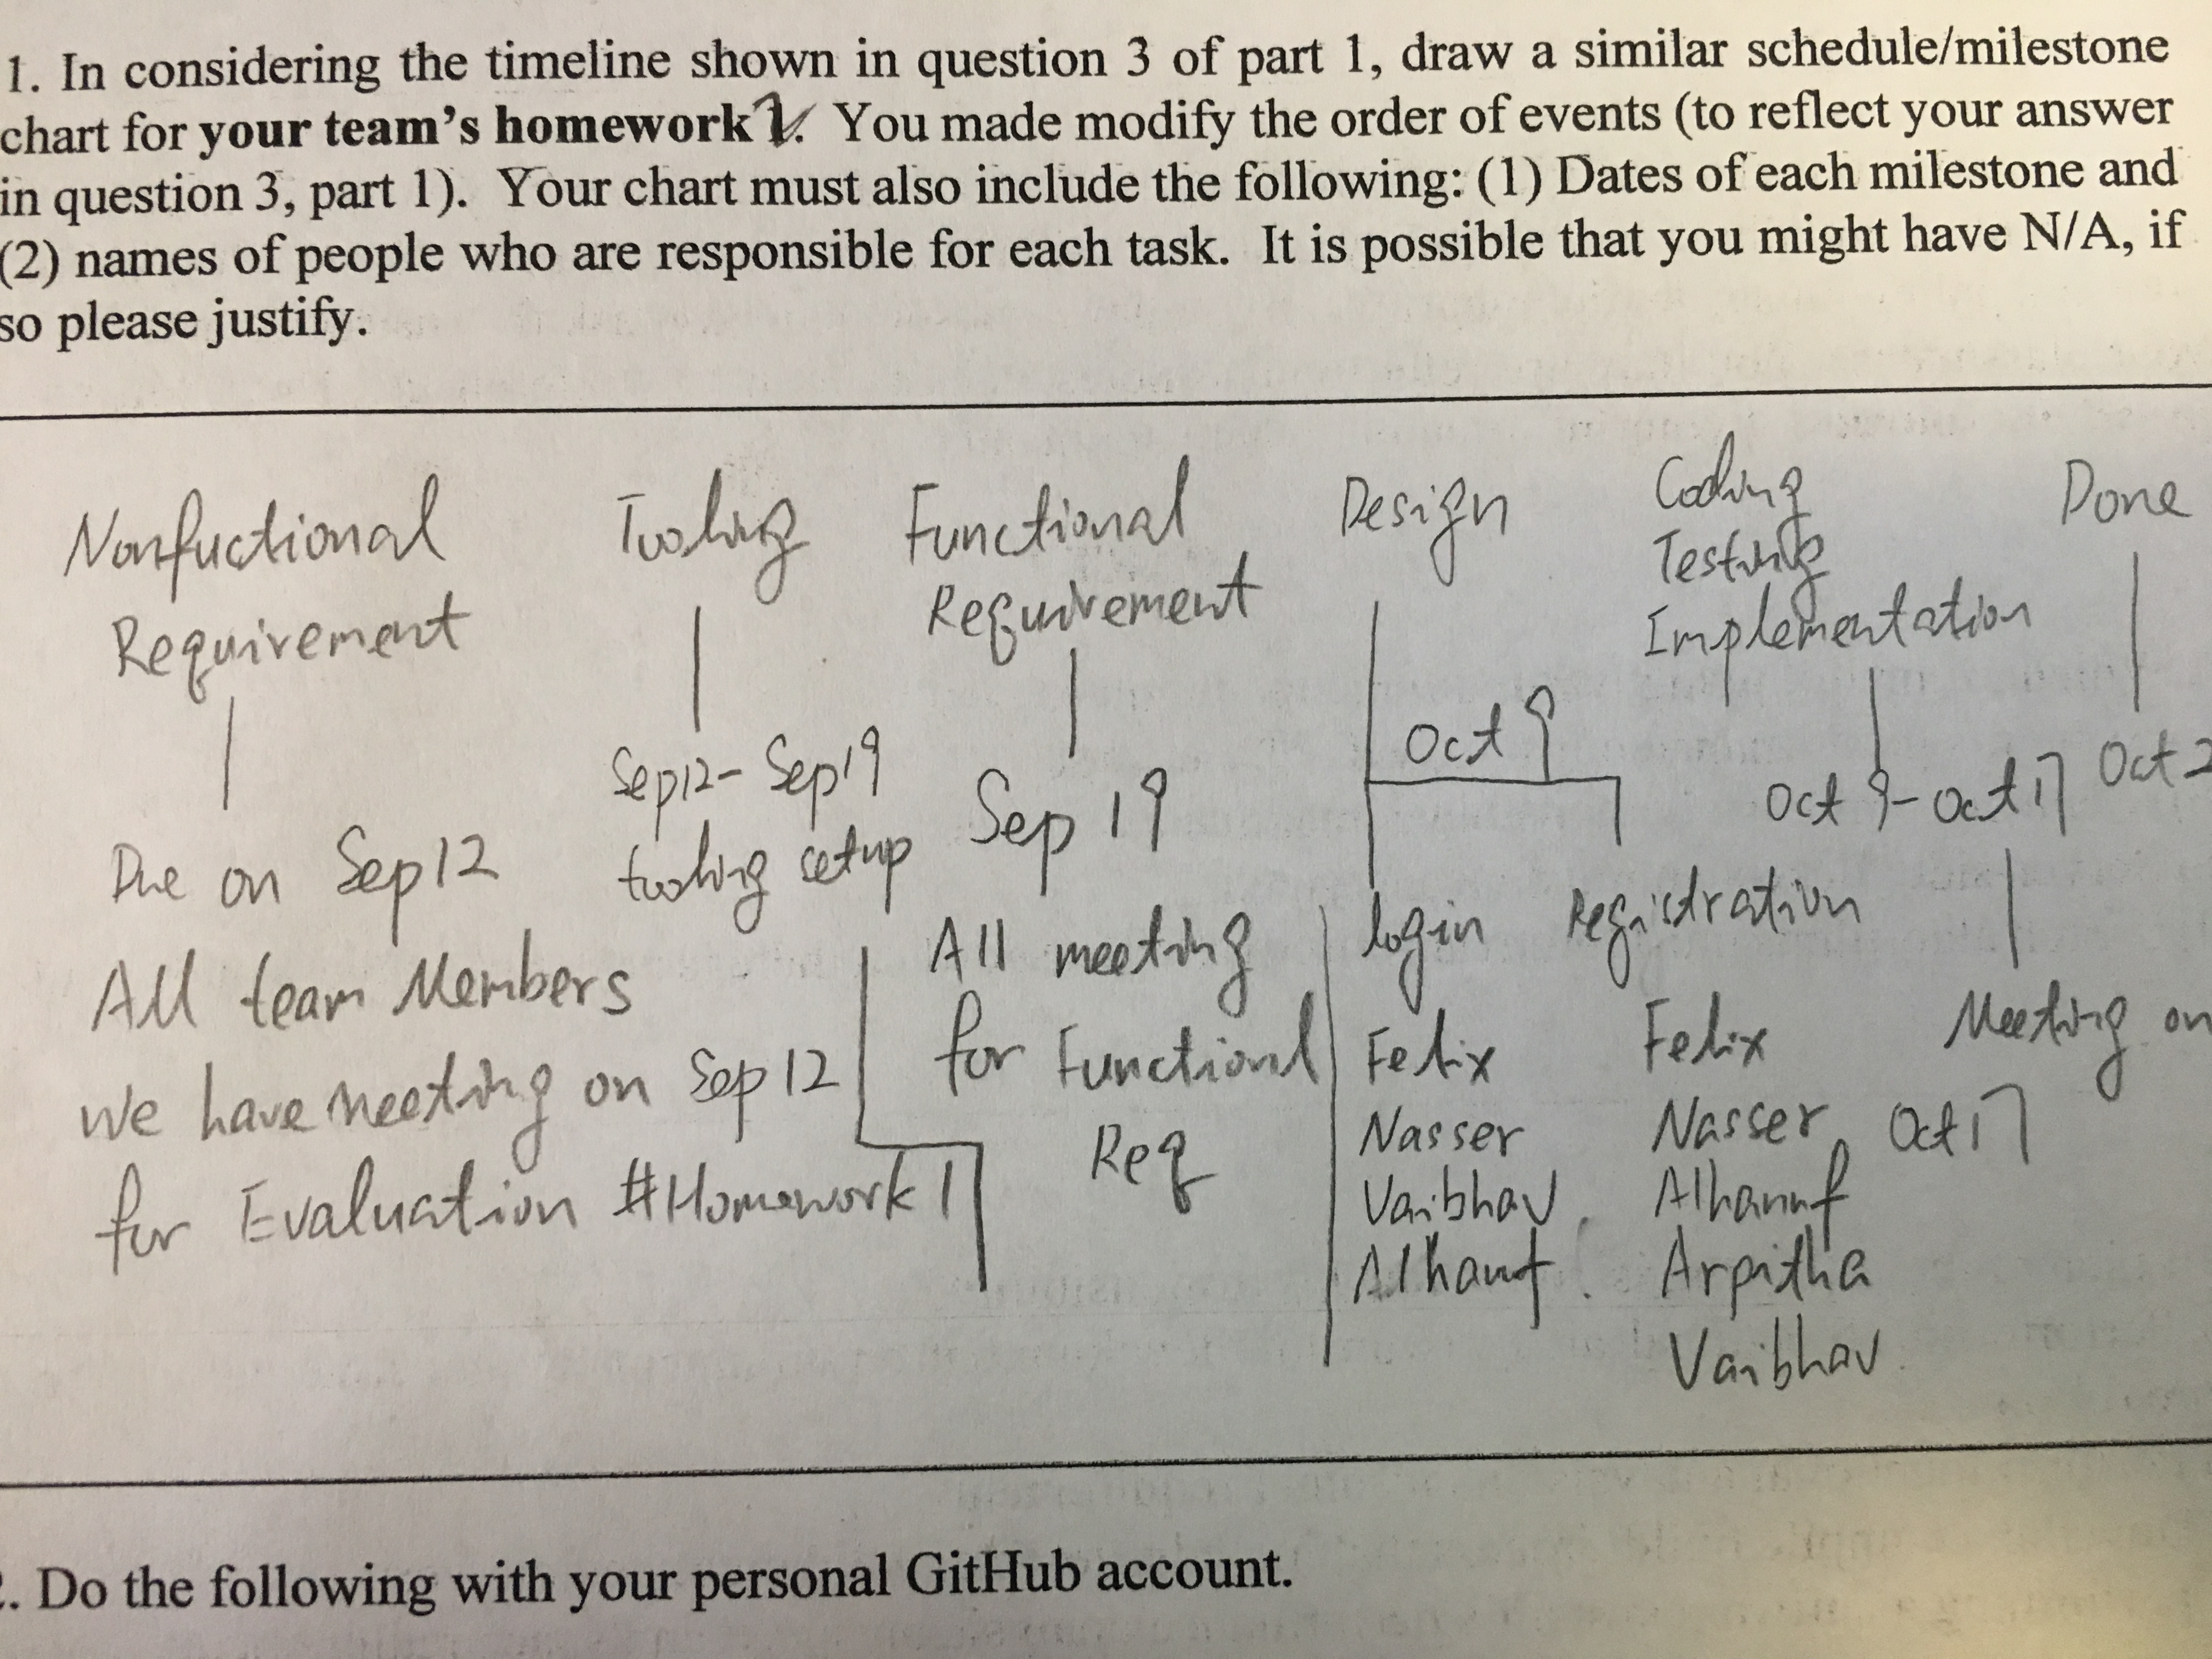 1. In considering the timeline shown in question 3 of part 1, draw a similar schedule/milestone
chart for your team's homework 2. You made modify the order of events (to reflect your answer
in question 3, part 1). Your chart must also include the following: (1) Dates of each milestone and
(2) names of people who are responsible for each task. It is possible that you might have N/A, if
so please justify.
Nonfuctional
Requirement
Due on Sep 12
All team Members
We have meeting on Sep 12
for Evaluation #Homework 1
Tooling
Sep12- Sep19
tooling setup
Functional
Requirement
Sep 19
All meeting
for Functional
Req
Design
Oct 9
login Registration
Felix Felix
Nasser Nasser
Vaibhav Alhanuf
Alhanuf Arpitha
Vaibhav
Coding
Testing
Implementation
Oct 9- Oct 17
Meeting on
Oct 17
Done
Oct 2
. Do the following with your personal GitHub account.